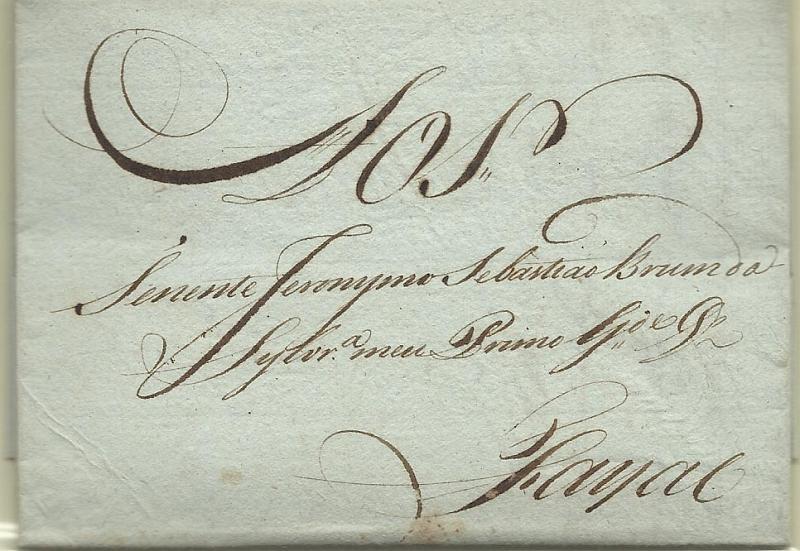 Ao S.r
Tenente Jeronymo Sebastião Brum da
Sylvr.ª meu Primo G.de D.s
Fayal